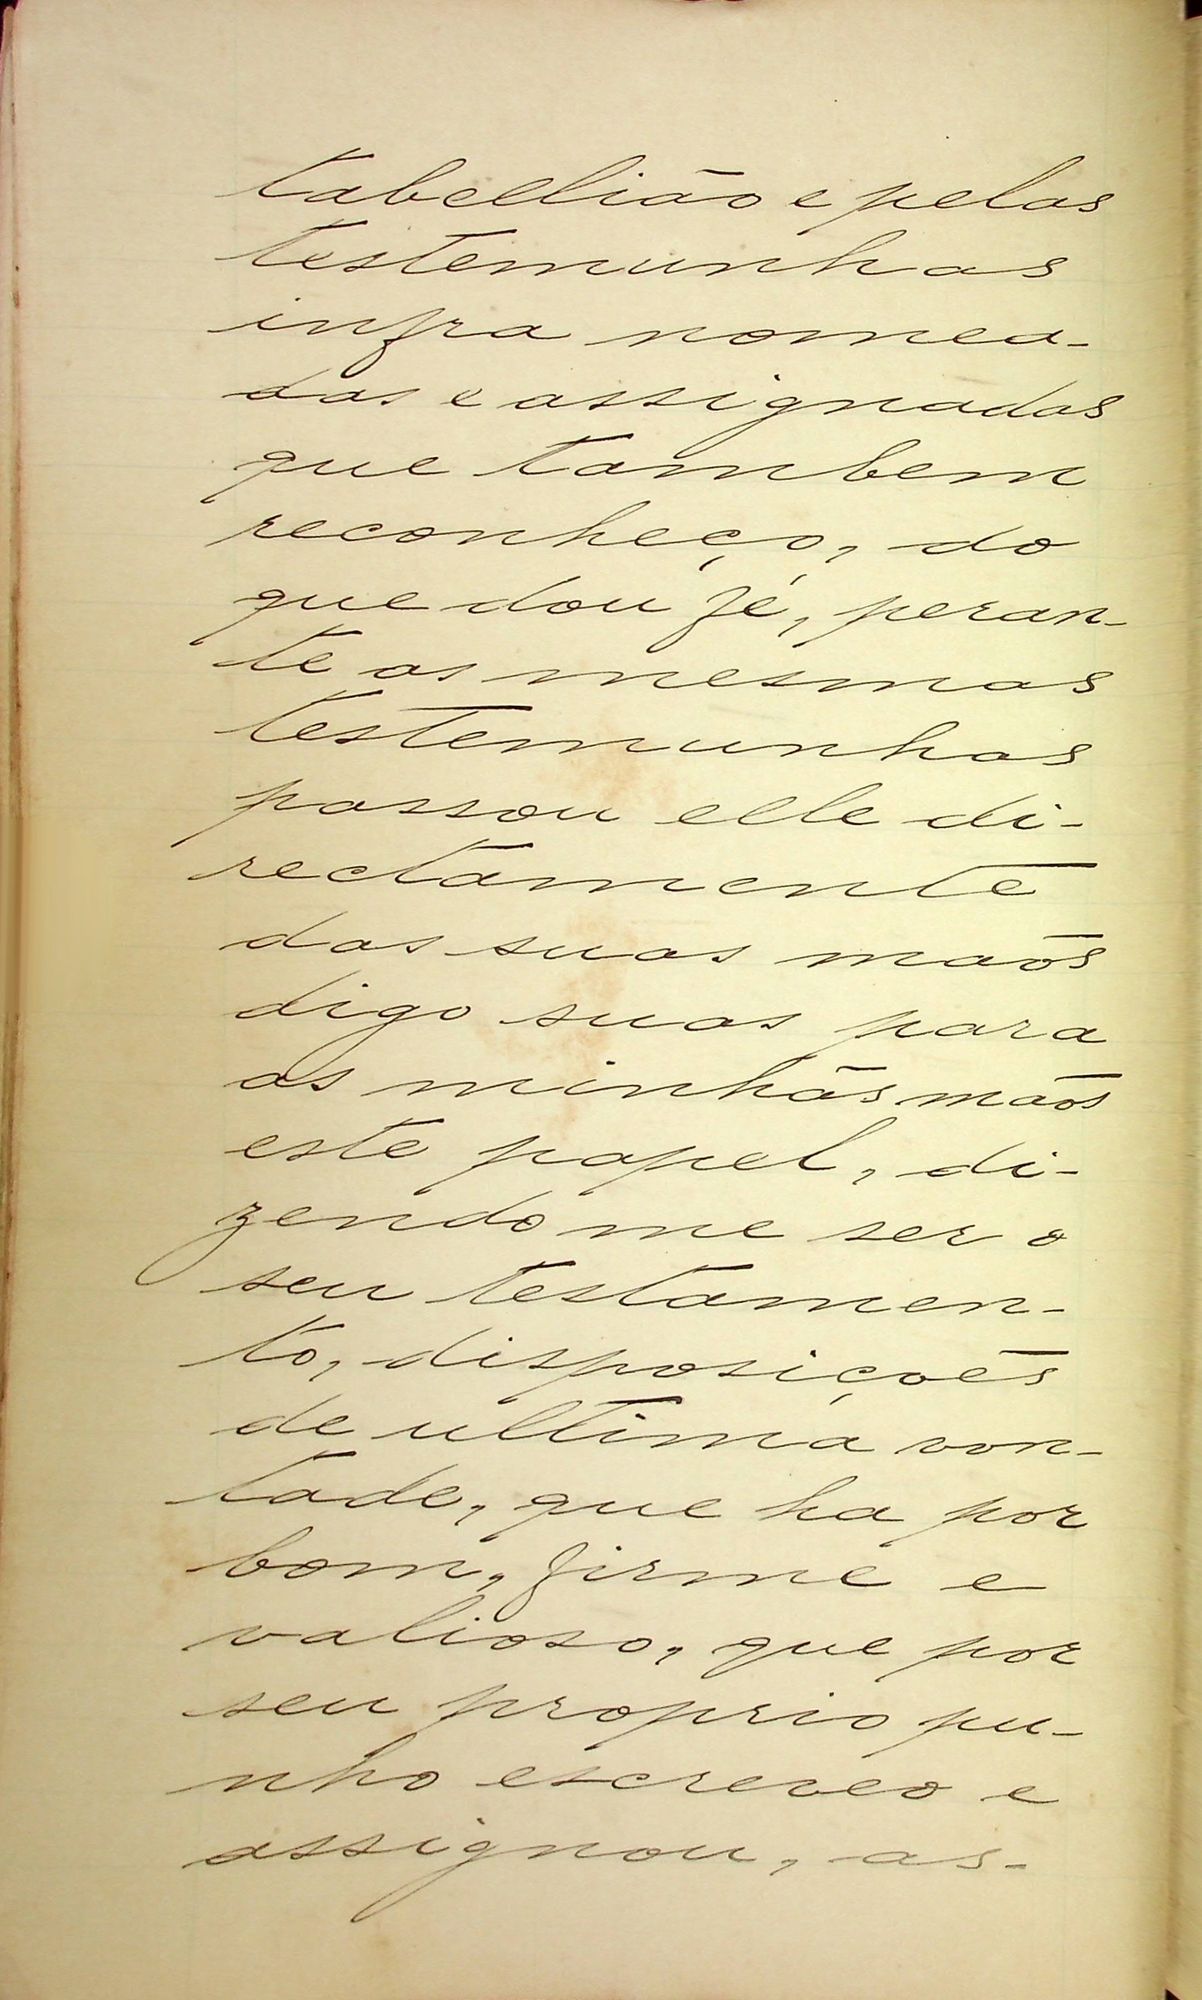 tabellião e pelas
testemunhas
infra nomea-
das e assignadas
que tambem
reconheço, do
que dou fé, peran-
te as mesmas
testemunhas
passou elle di-
rectamente
das suas maõs
digo suas para
as minhãs mãos
este papel, di-
zendo me ser o
seu testamen-
to, disposiçoẽs
de ultima von-
tade, que ha por
bom, firme e
valioso, que por
seu proprio pu-
nho escreveo e
assignou, as-